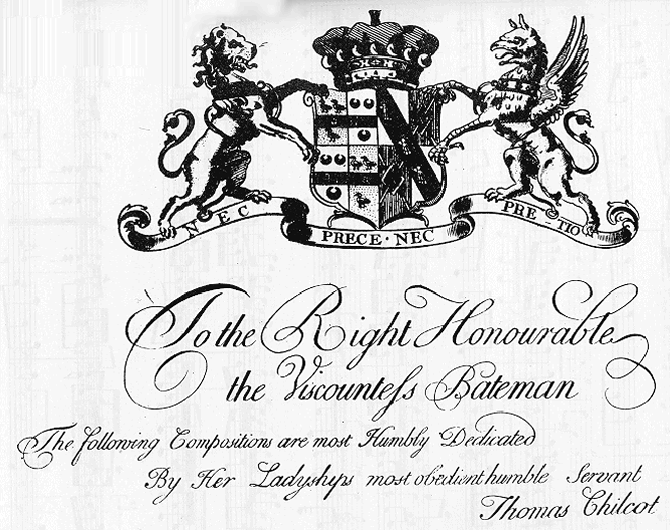 NEC PRECE · NEC PRETIO
To the Right Honourable
the Viscounteſs Bateman
The following Compositions are most Humbly Dedicated
By Her Ladyships most obedient humble Servant
Thomas Chilcot